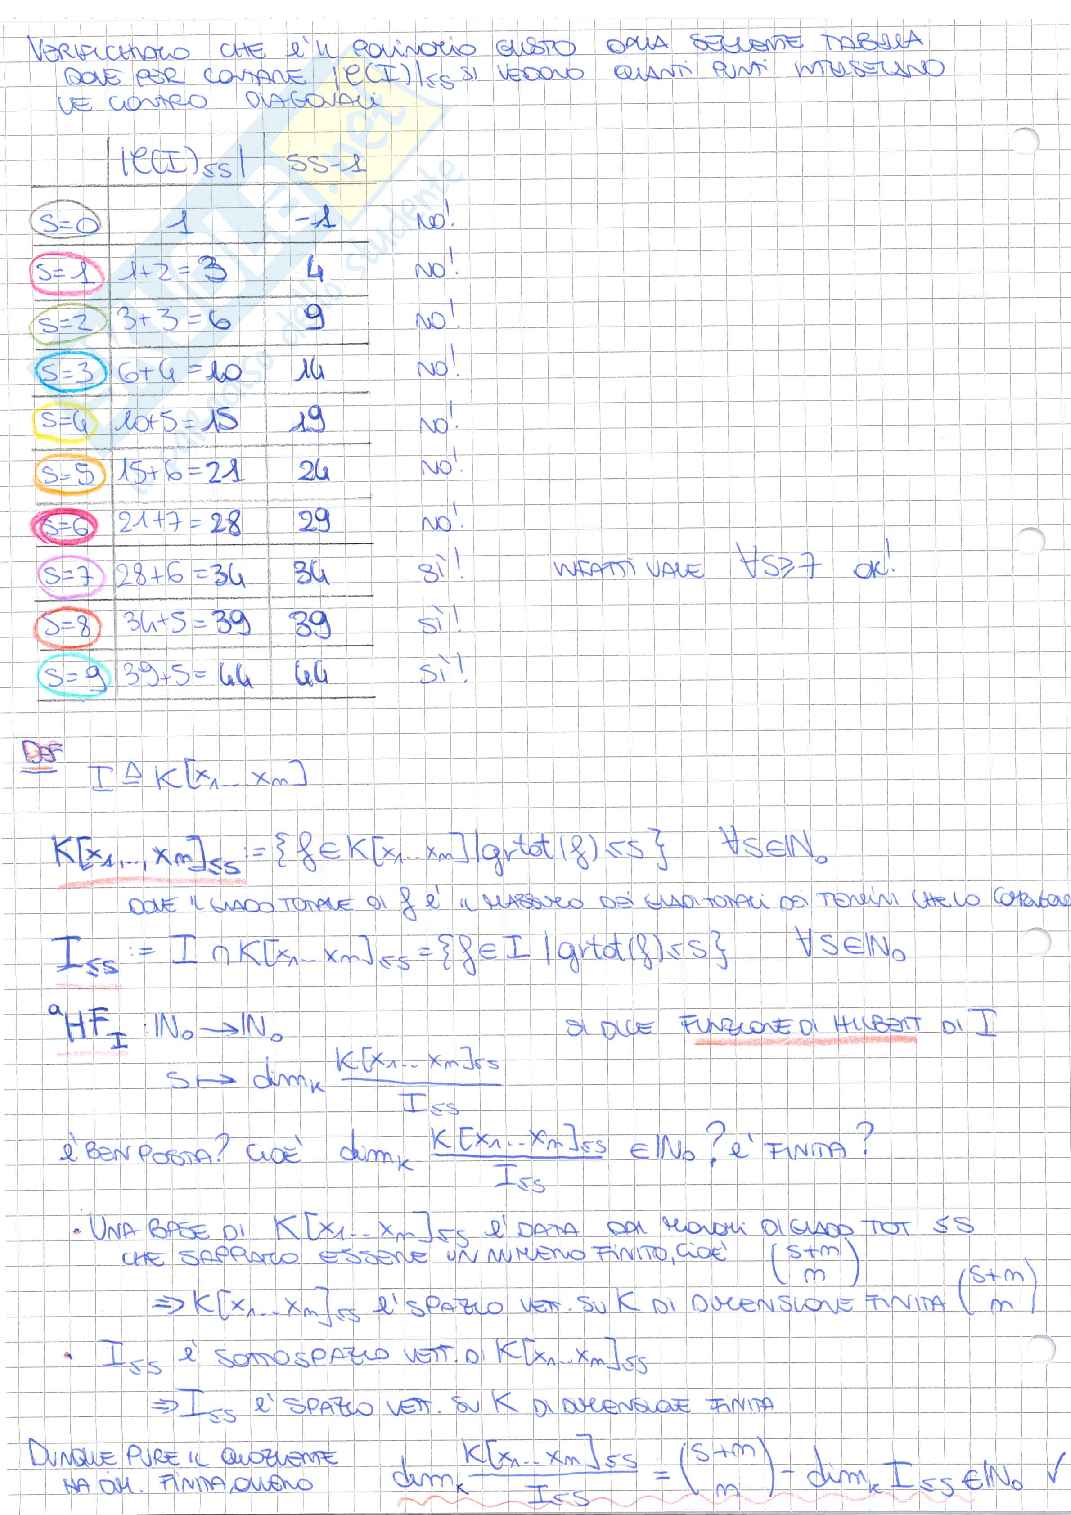 VERIFICHIAMO CHE È IL POLINOMIO GIUSTO DALLA SEGUENTE TABELLA
DOVE PER CONTARE |C(I)|≤s SI VEDONO QUANTI PUNTI INTERSECANO
LE CONTRO DIAGONALI
|C(I)≤s| 5s-1
s=0 1 -1 NO!
s=1 1+2=3 4 NO!
s=2 3+3=6 9 NO!
s=3 6+4=10 14 NO!
s=4 10+5=15 19 NO!
s=5 15+6=21 24 NO!
s=6 21+7=28 29 NO!
s=7 28+6=34 34 SÌ! INFATTI VALE ∀s≥7 OK!
s=8 34+5=39 39 SÌ!
s=9 39+5=44 44 SÌ!
DEF
I ⊴ K[x1...xn]
K[x1,...,xn]≤s := {f∈K[x1...xn] | grtot(f)≤s} ∀s∈IN0
DOVE IL GRADO TOTALE DI f È IL MASSIMO DEI GRADI TOTALI DEI TERMINI CHE LO
I≤s := I ∩ K[x1...xn]≤s = {f∈I | grtot(f)≤s} ∀s∈IN0
aHF_I : IN0 → IN0 SI DICE FUNZIONE DI HILBERT DI I
s ↦ dim_K K[x1...xn]≤s / I≤s
È BEN POSTA? CIOÈ dim_K K[x1...xn]≤s / I≤s ∈ IN0? È FINITA?
• UNA BASE DI K[x1...xn]≤s È DATA DAI MONOMI DI GRADO TOT ≤s
CHE SAPPIAMO ESSERE UN NUMERO FINITO, CIOÈ (s+n n)
⇒ K[x1...xn]≤s È SPAZIO VETT. SU K DI DIMENSIONE FINITA (s+n n)
• I≤s È SOTTOSPAZIO VETT. DI K[x1...xn]≤s
⇒ I≤s È SPAZIO VETT. SU K DI DIMENSIONE FINITA
DUNQUE PURE IL QUOZIENTE
HA DIM. FINITA, OVVERO dim_K K[x1...xn]≤s / I≤s = (s+n n) - dim_K I≤s ∈ IN0 ✓